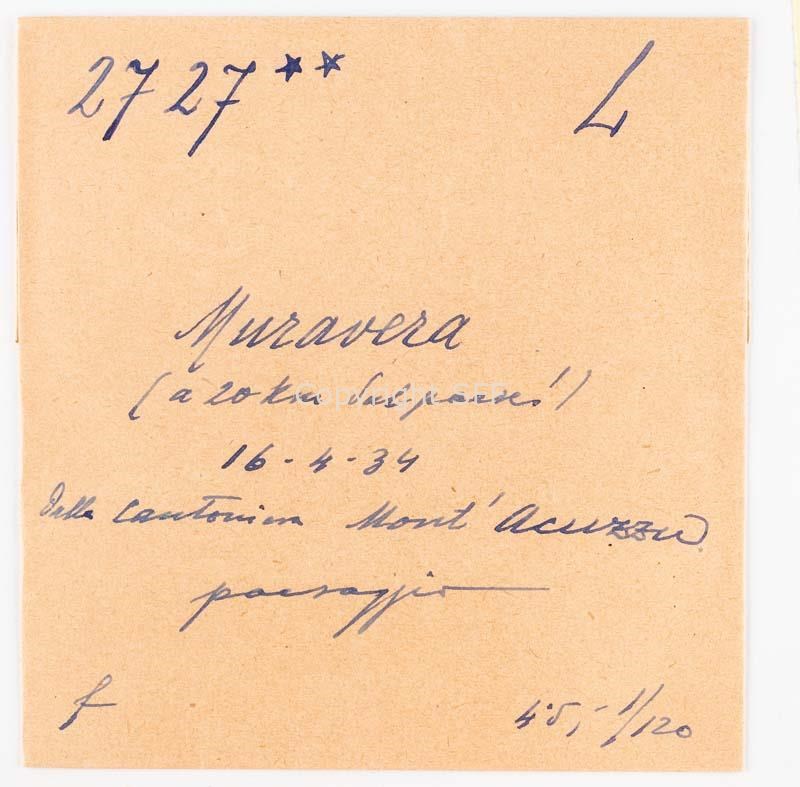 2727** L
Muravera
(a 20 km dal paese)
16-4-34
Dalla Cantoniera Mont' Acuzzu
paesaggio
f 4.5,- 1/120